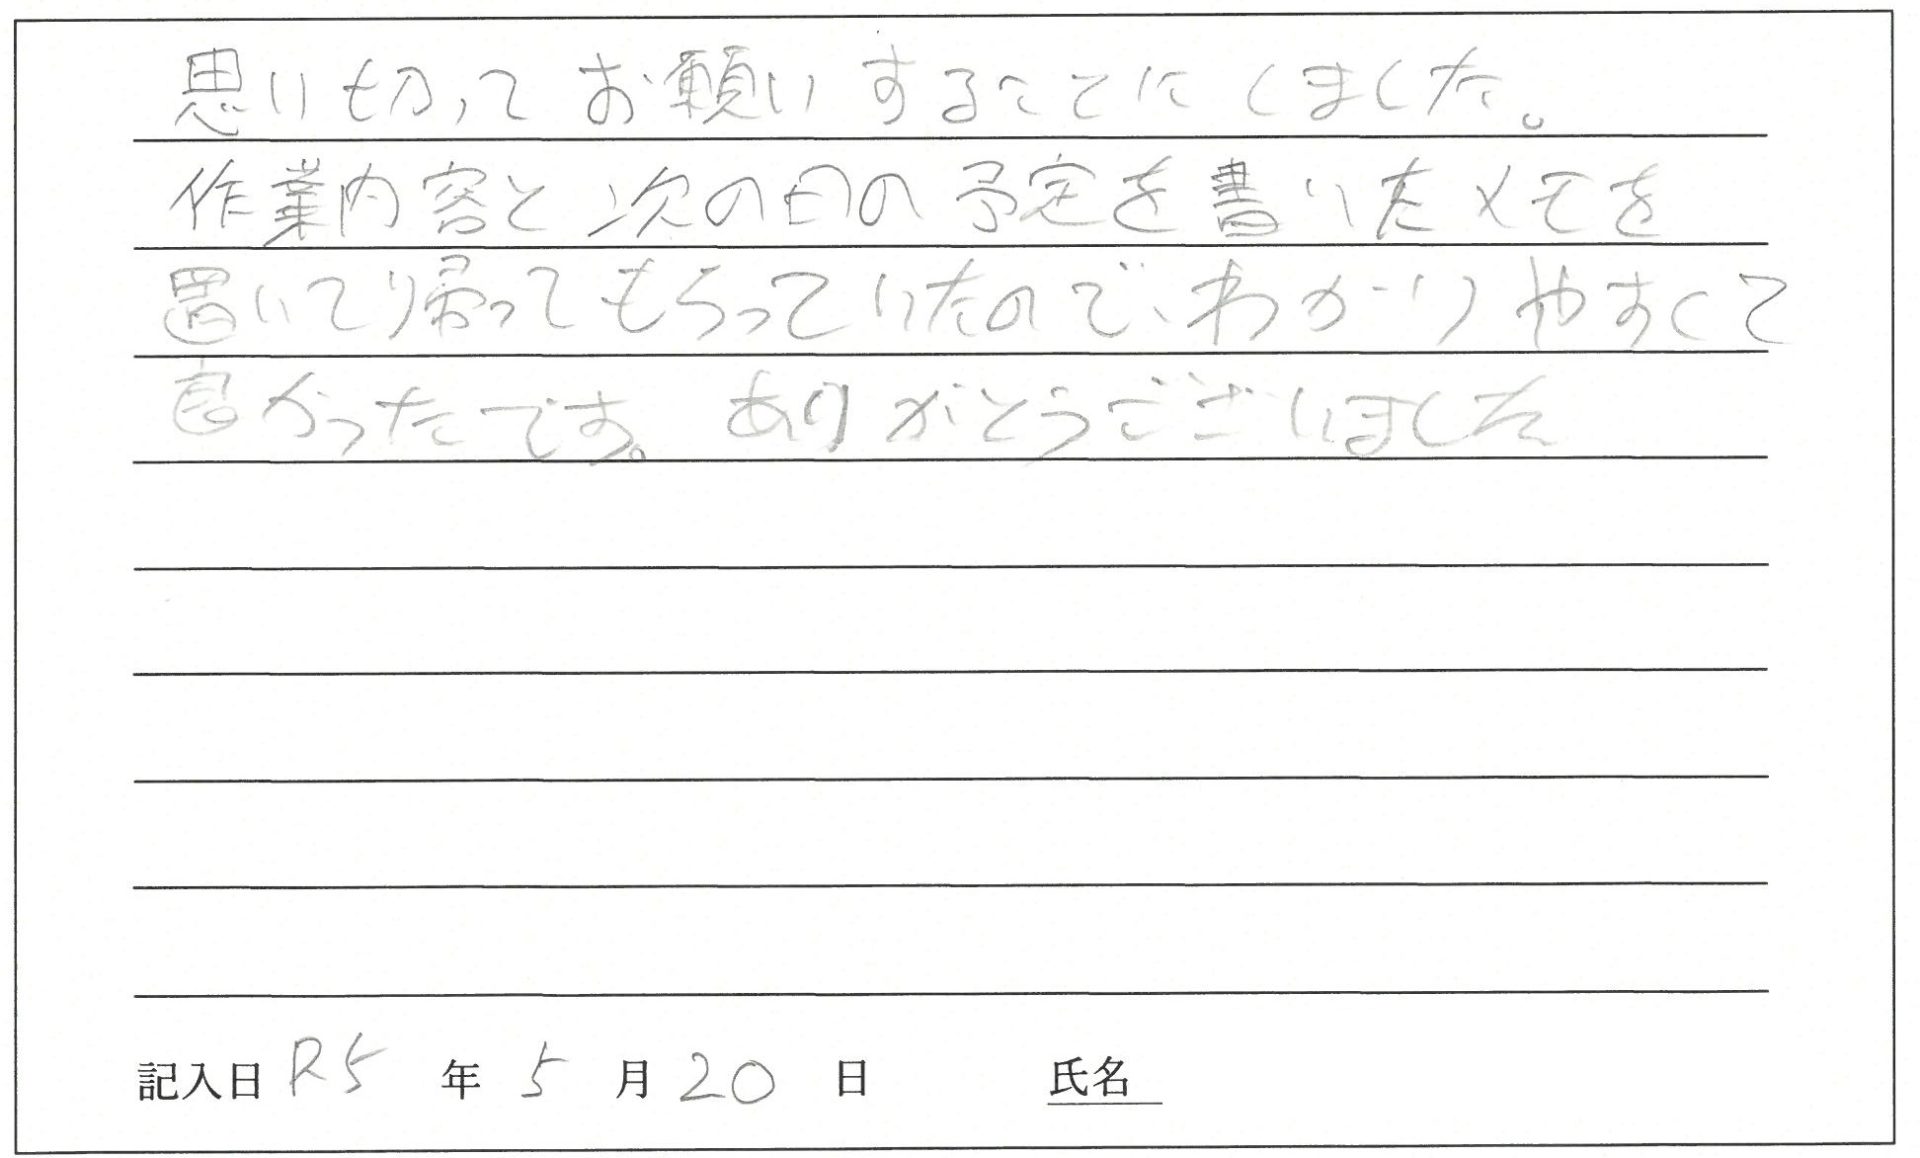 思い切ってお願いすることにしました。
作業内容と次の日の予定を書いたメモを
置いてり帰ってもらっていたので、わかりやすくて
良かったです。ありがとうございました
記入日 R5 年 5 月 20 日 氏名